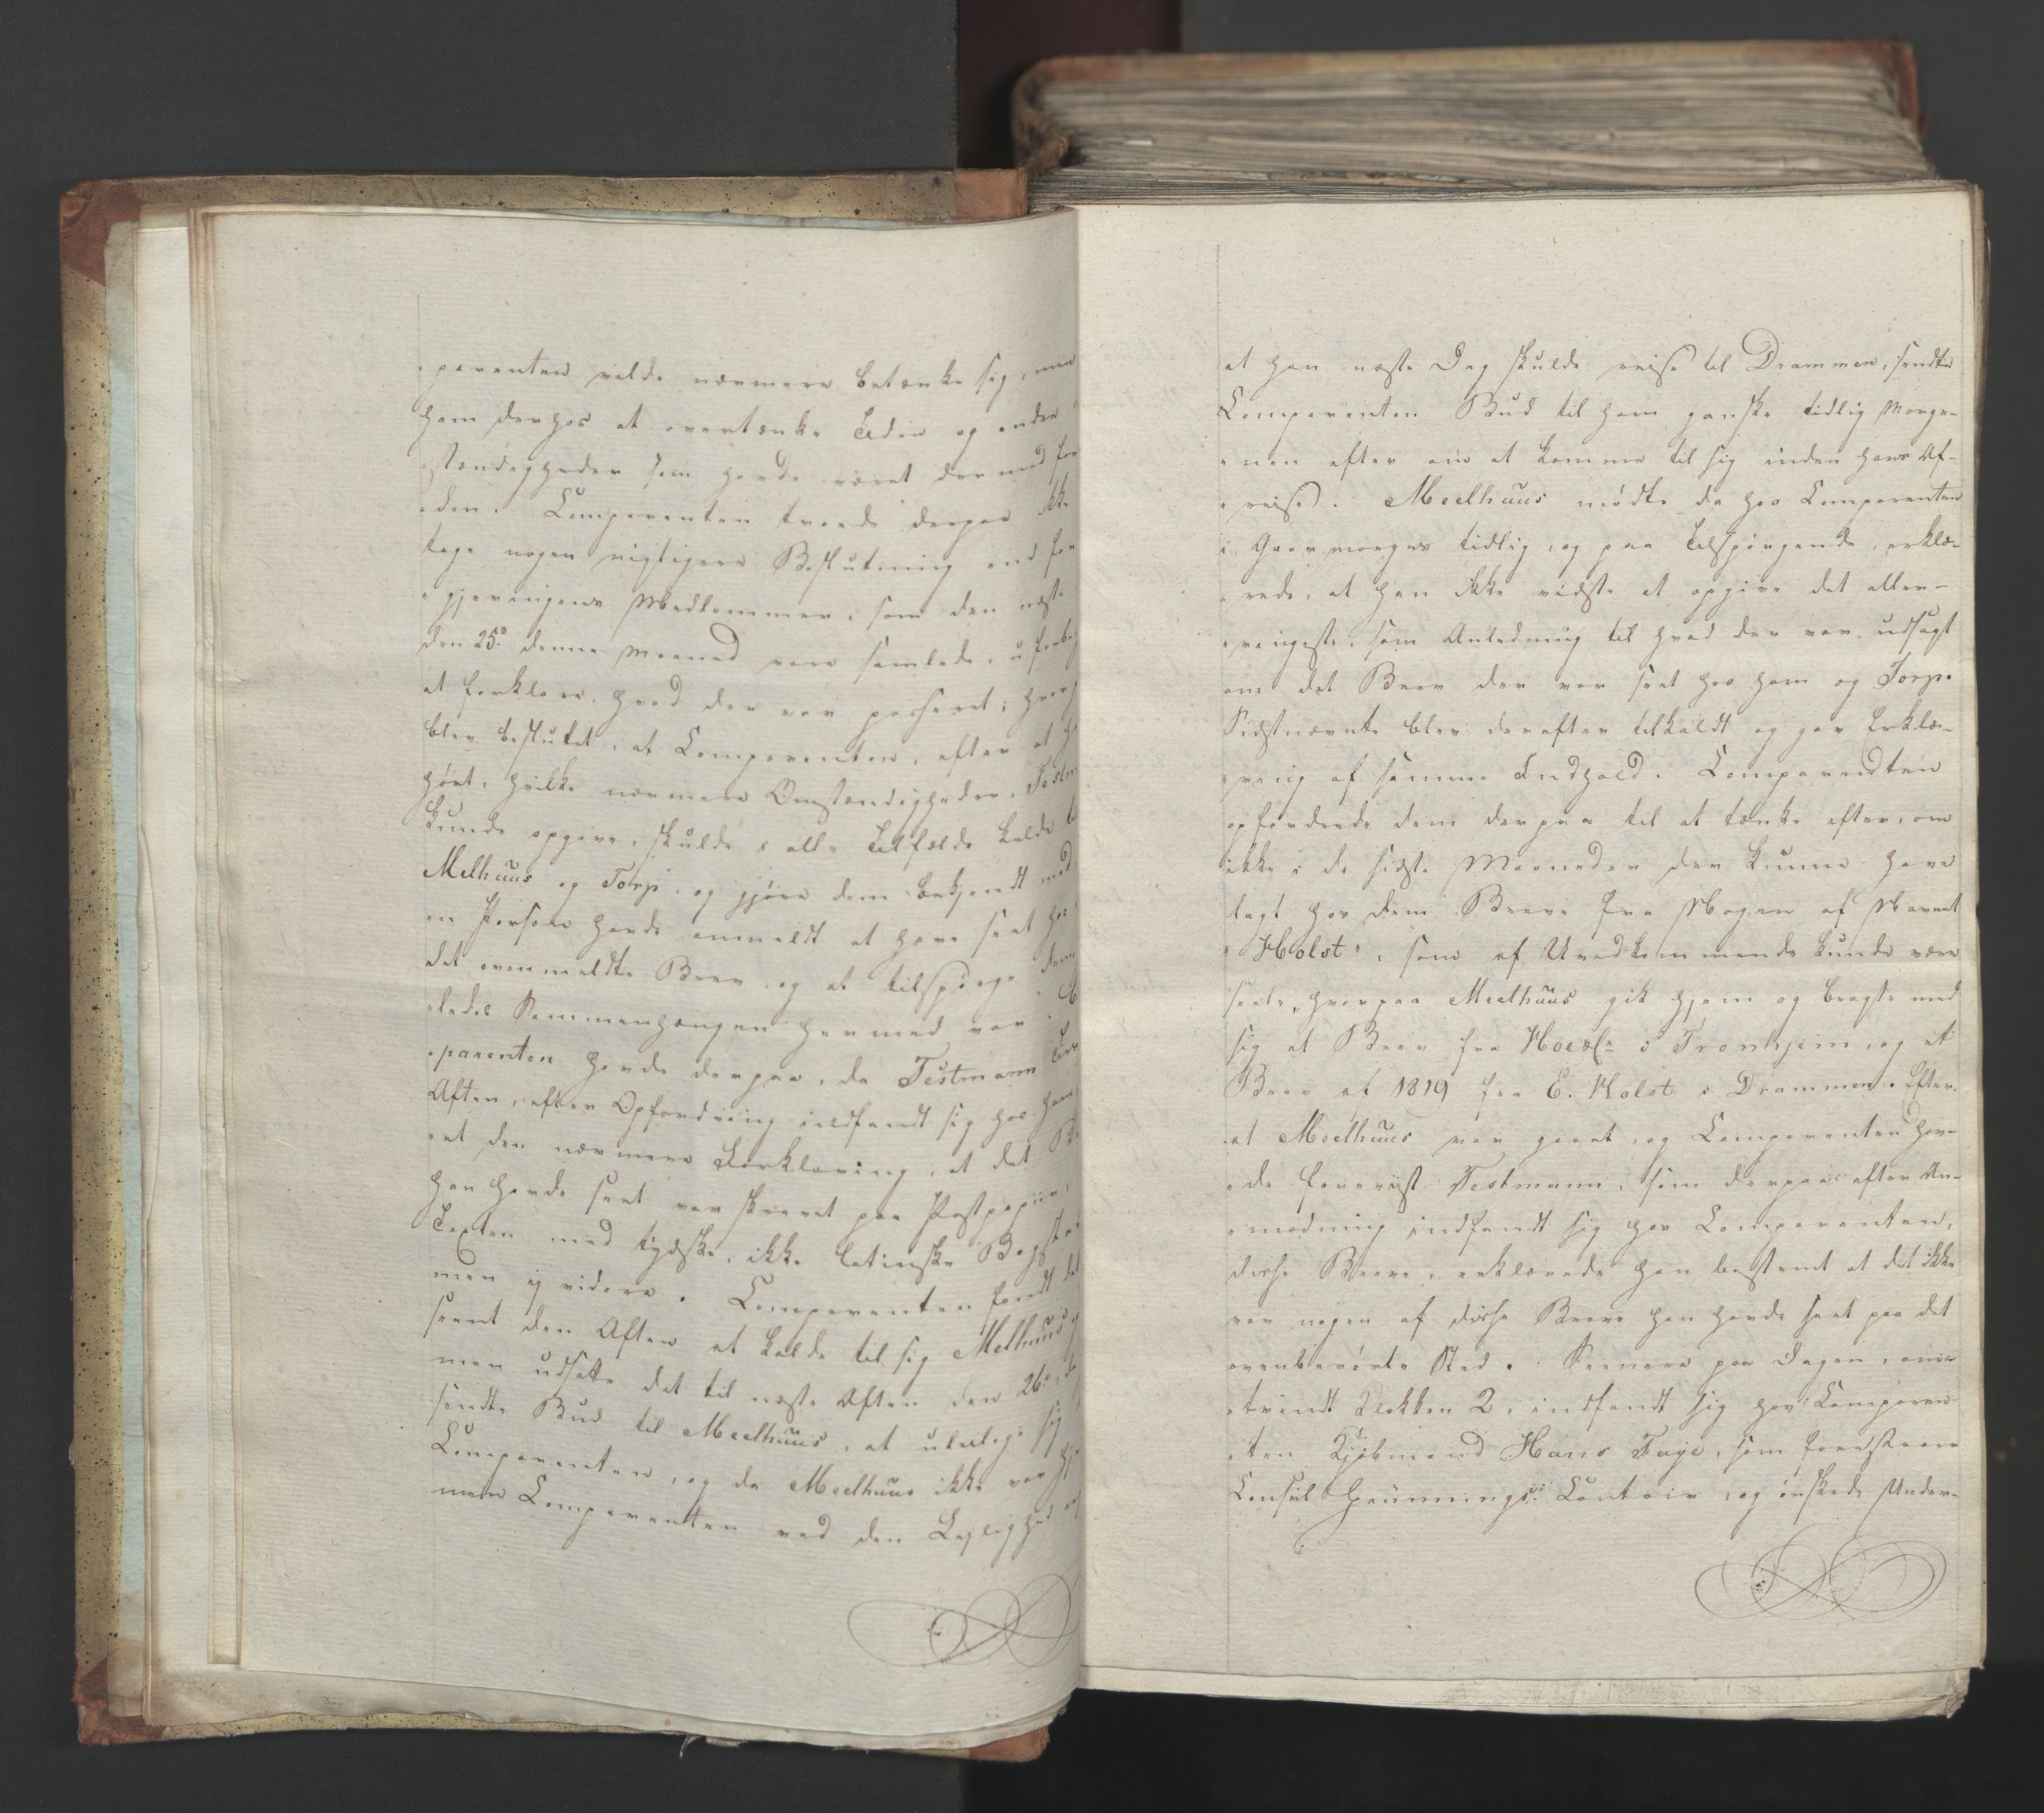 parenten vilde nærmere betænke sig, men
ham derhos at overtænke Tiden og andre
stændigheder som havde været dermed for
den. Comparenten troede derpaa ikke
tage nogen vigtigere Beslutning end for
gjeringens Medlemmer, som den næste
den 25de denne Maaned vare samlede,
at forklare hvad der var passeret; hvor
blev besluttet, at Comparenten, efter at
hørt, hvilke nærmere Omstændigheder, Testm
kunde opgive, skulde i alle Tilfælde kalde til
Melhuus og Torp og gjøre dem bekjendt med
en Person havde anmeldt at have seet hos
det ommeldte Brev og at tilspørge dem
ledes Sammenhængen hermed var.
parenten havde derpaa, da Testmann
Aften, efter Opfordring indfandt sig hos ham
et den nærmere Forklaring, at det
han havde seet var skrevet paa Postpapiir,
Texten med tydske, ikke latinske Bogsta
men ej videre. Comparenten fandt det
seent den Aften at kalde til sig Melhuus
men udsatte det til næste Aften den 26de, da
sendte Bud til Meelhuus, at uleilige sig
Comparenten, og da Meelhuus ikke var hj
men Comparenten ved den Lejlighed
at han næste Dag skulde reise til Drammen, sendte
Comparenten Bud til ham ganske tidlig Morge-
nen efter om at komme til sig inden hans Af-
reise. Meelhuus mødte da hos Comparenten
i Gaar morges tidlig, og paa Tilspørgende, erklæ-
rede, at han ikke vidste at opgive det aller-
ringeste, som Anledning til hvad der var udsagt
om det Brev der var seet hos ham og Torp.
Sidstnævnte blev derefter tilkaldt og gav Erklæ-
ring af samme Indhold. Comparendten
opfordrede dem derpaa til at tænke efter, om
ikke i de sidste Maaneder der kunne have
lagt hos dem Breve fra Nogen af Navnet
"Holst", som af Uvedkommende kunde være
seete, hvorpaa Meelhuus gik hjem og bragte med
sig et Brev fra i Tronhjem, og et
Brev af 1819 fra E. Holst i Drammen. Efter
at Meelhuus var gaaet, og Comparenten hav-
de foreviist Testmann, som derpaa efter An-
modning indfandt sig hos Comparenten,
disse Breve, erklærede han bestemt at det ikke
var nogen af disse Breve han havde seet paa det
ovenberørte Sted. Seenere paa Dagen, om-
trindt Klokken 2, indfandt sig hos Comparen-
ten Kjøbmand Hans Faye, som forestaaer
Consul Grünnings Contoir, og ønskede Under-